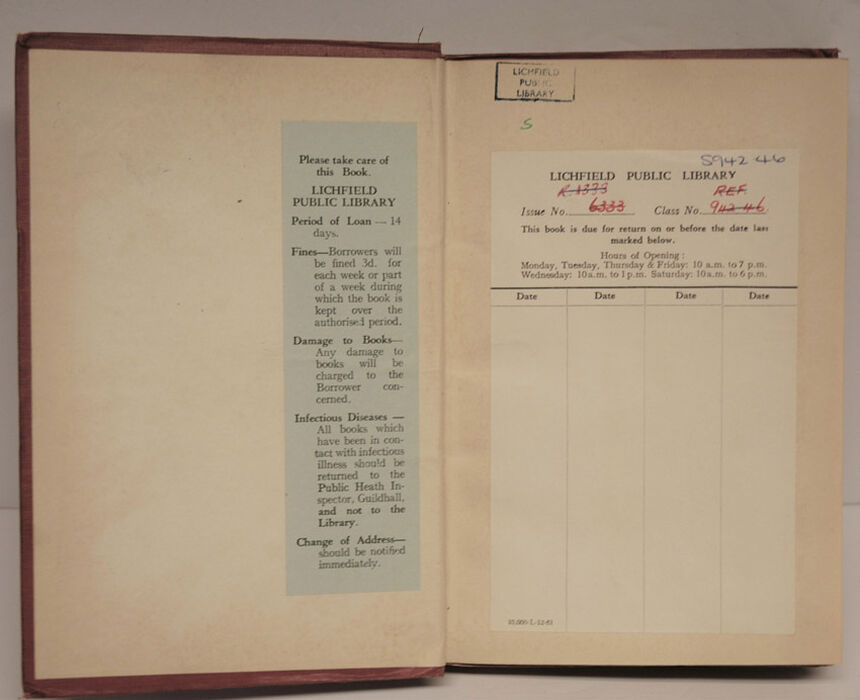 Please take care of
this Book.
LICHFIELD
PUBLIC LIBRARY
Period of Loan — 14
days.
Fines—Borrowers will
be fined 3d. for
each week or part
of a week during
which the book is
kept over the
authorised period.
Damage to Books—
Any damage to
books will be
charged to the
Borrower con-
cerned.
Infectious Diseases —
All books which
have been in con-
tact with infectious
illness should be
returned to the
Public Heath In-
spector, Guildhall,
and not to the
Library.
Change of Address—
should be notified
immediately.
LICHFIELD
PUBLIC
LIBRARY
S
S942 46
LICHFIELD PUBLIC LIBRARY
R 1333 REF.
Issue No. 6333 Class No. 942.46.
This book is due for return on or before the date last
marked below.
Hours of Opening :
Monday, Tuesday, Thursday & Friday: 10 a.m. to 7 p.m.
Wednesday: 10 a.m. to 1 p.m. Saturday: 10 a.m. to 6 p.m.
Date Date Date Date